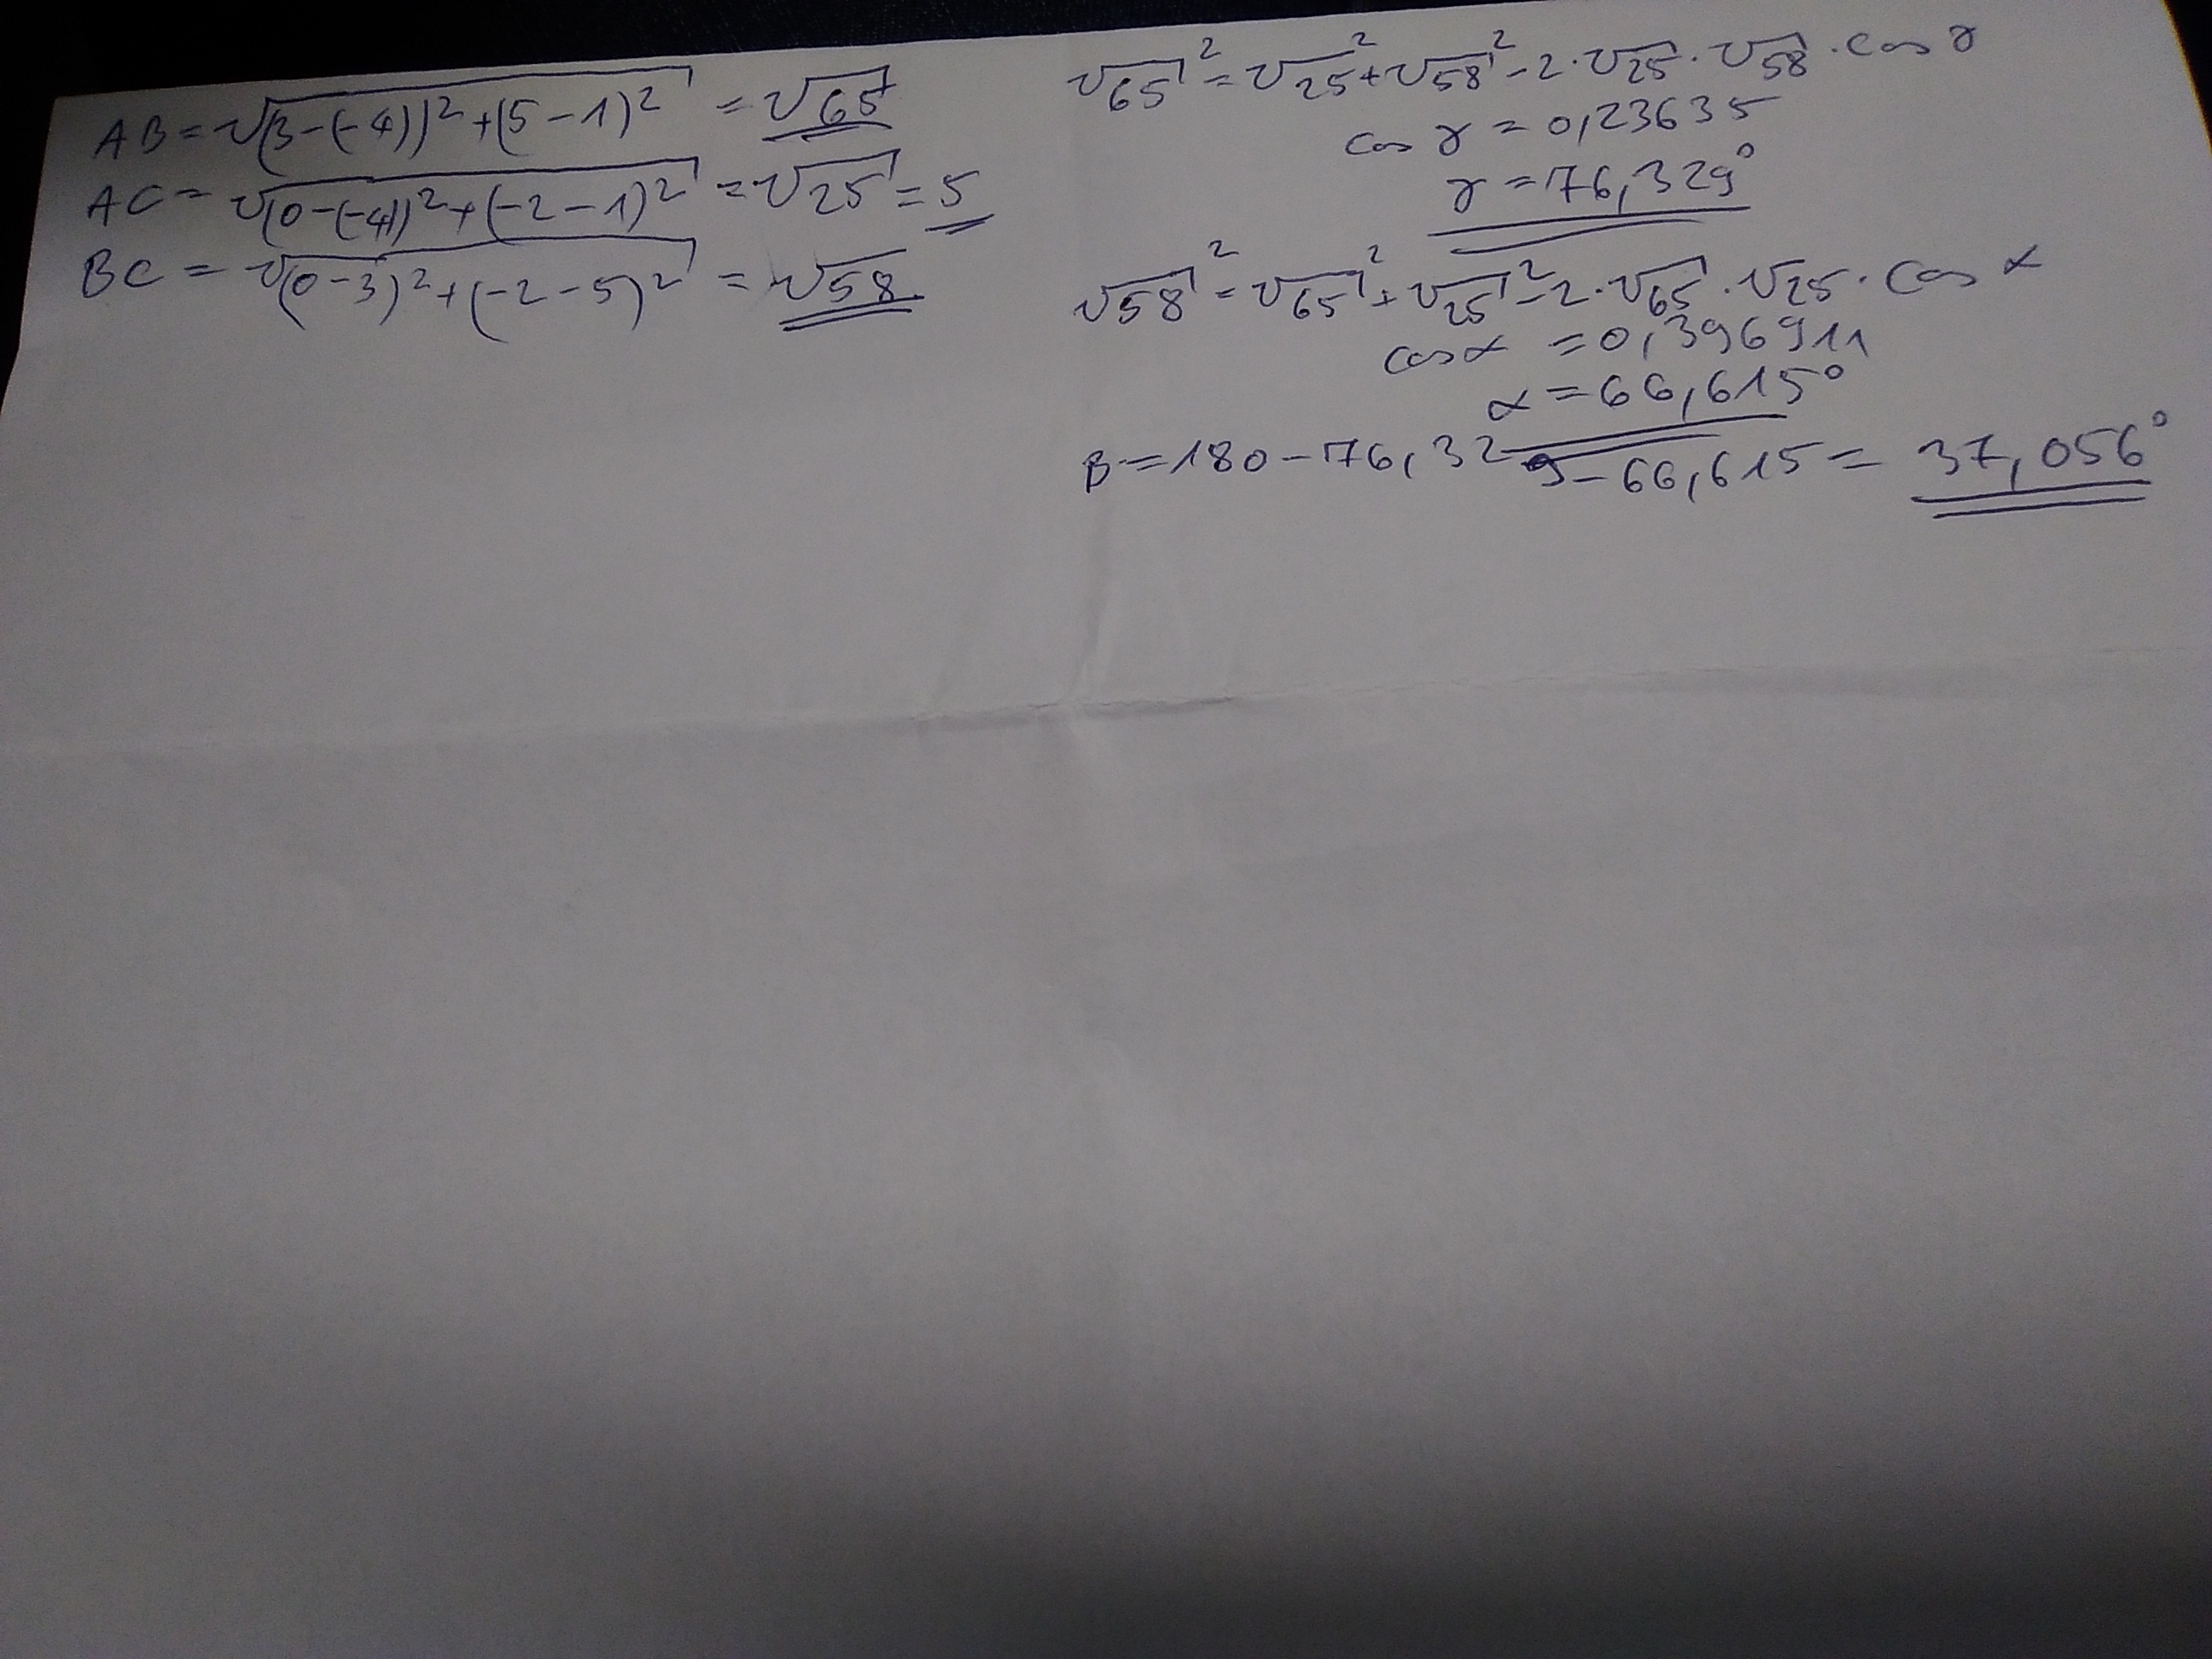 AB = √(3-(-4))² + (5-1)² = √65
AC = √(0-(-4))² + (-2-1)² = √25 = 5
BC = √(0-3)² + (-2-5)² = √58
√65² = √25² + √58² - 2·√25·√58·cos γ
cos γ = 0,23635
γ = 76,329°
√58² = √65² + √25² - 2·√65·√25·cos α
cos α = 0,396911
α = 66,615°
β = 180 - 76,329 - 66,615 = 37,056°